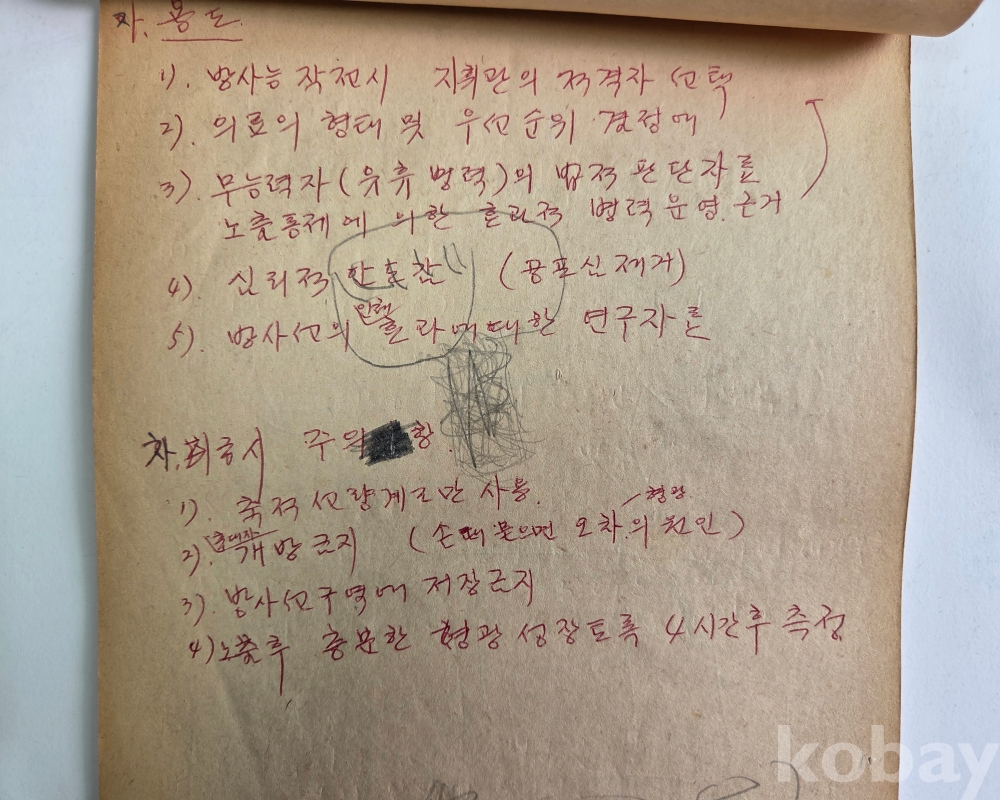 자. 용도
1). 방사능 작전시 지휘관의 적격자 선택
2). 의료의 형태 및 우선순위 결정에
3). 무능력자 (유휴 병력)의 법적 판단자료
노출통제에 의한 효과적 병력운영. 근거
4). 심리적 (공포심 제거)
5). 방사선의 인체 효과에 대한 연구자료
차. 취급시 주의 항
1). 축적선량계로만 사용.
형광
2). 개방금지 (손때 묻으면 오차의 원인)
3). 방사선구역에 저장금지
4) 노출후 충분한 형광 성장토록 4시간후 측정
kobay